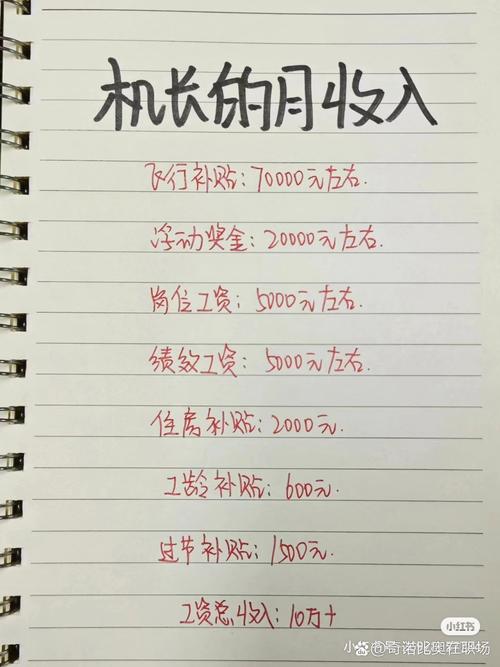 机长的月收入
飞行补贴：70000元左右.
浮动奖金：20000元左右.
岗位工资；5000元左右.
绩效工资：5000元左右.
住房补贴：2000元.
工龄补贴：600元.
过节补贴：1500元.
工资总收入：10万+
小红书
@奇诺比奥在职场